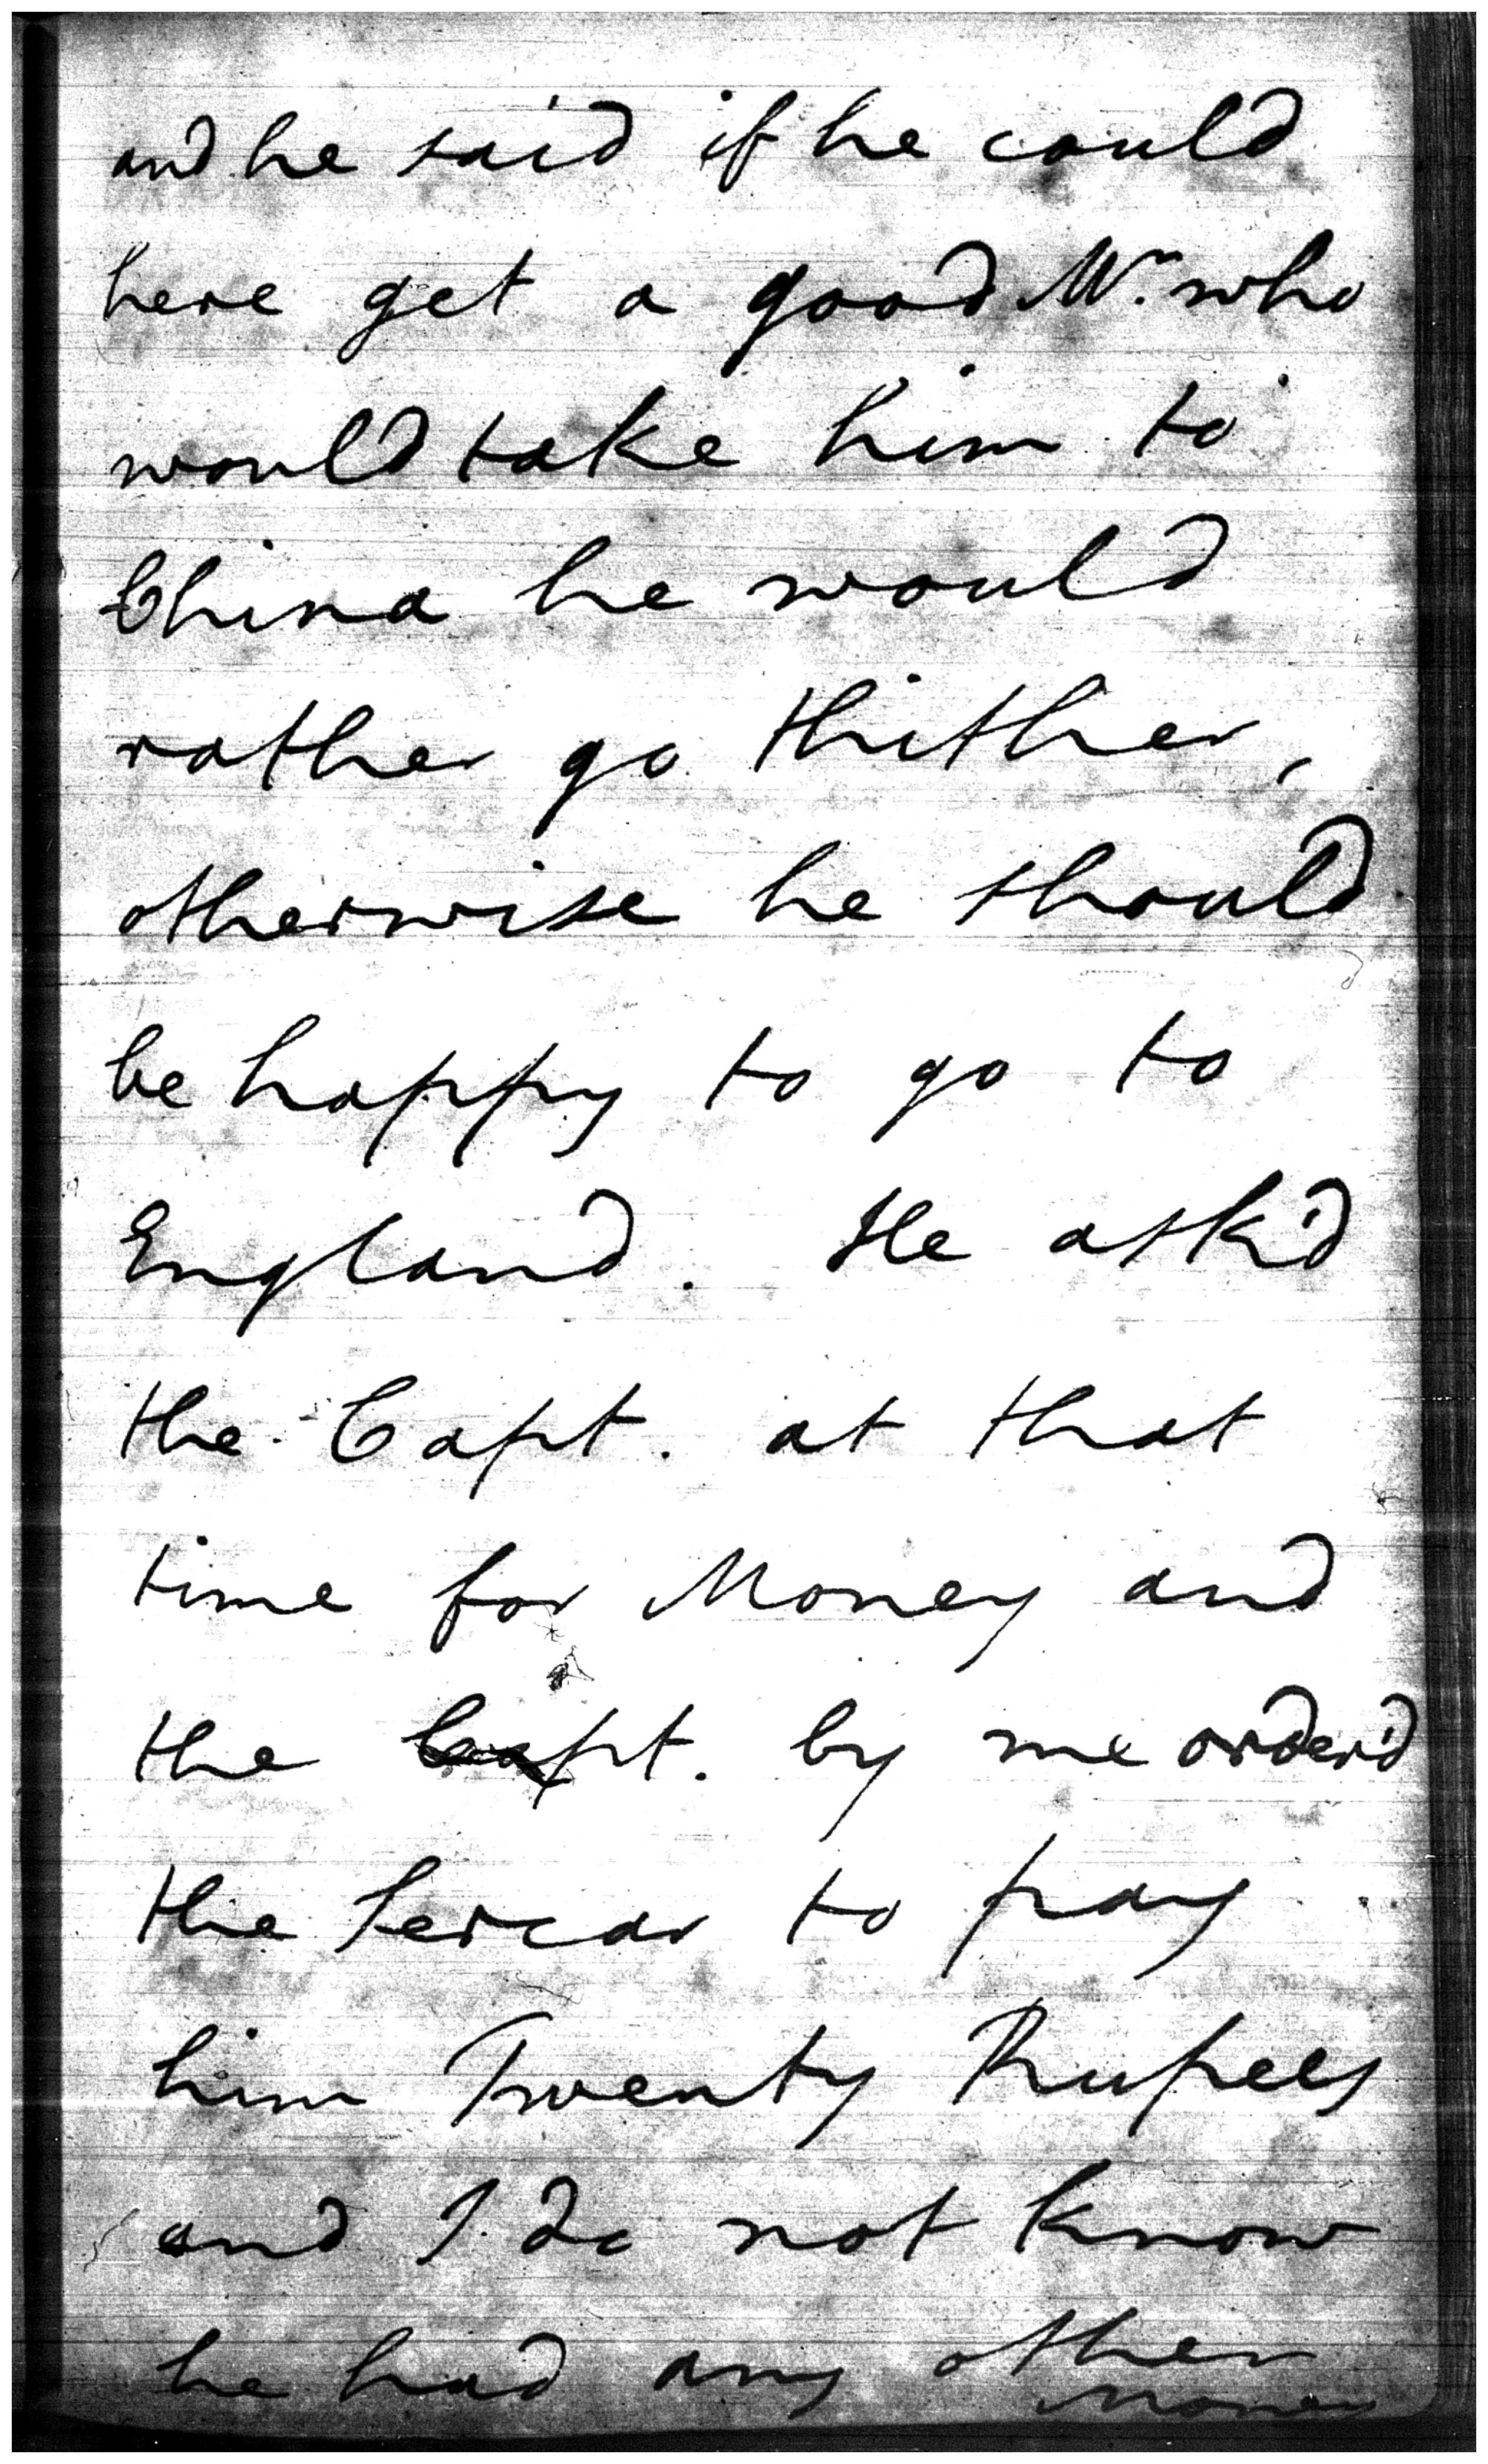 and he said if he could
here get a good Mr. who
would take him to
China he would
rather go thither,
otherwise he should
be happy to go to
England. He ask'd
the Capt. at that
time for Money and
the Capt. by me order'd
the Sercar to pay
him Twenty Rupees
and I do not know
he had any other
Money